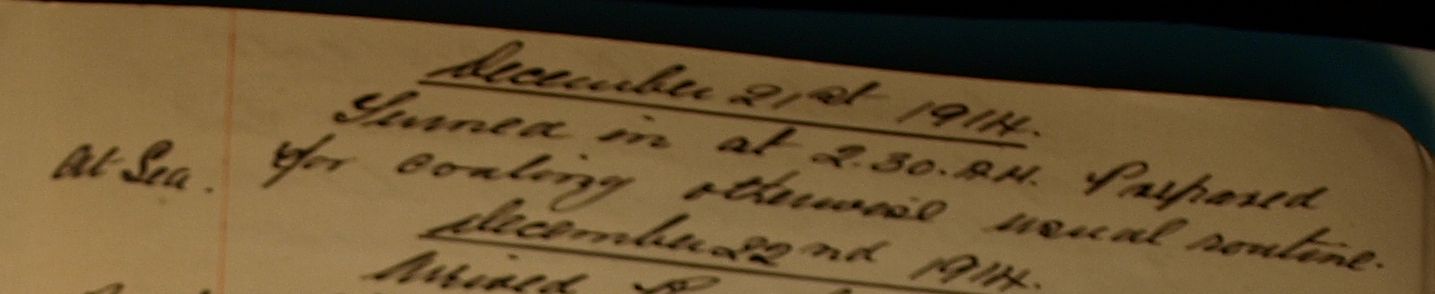 December 21st 1914.
Turned in at 2.30. A.M. Prepared
At Sea. for coaling otherwise usual routine.
December 22nd 1914.
Arrived